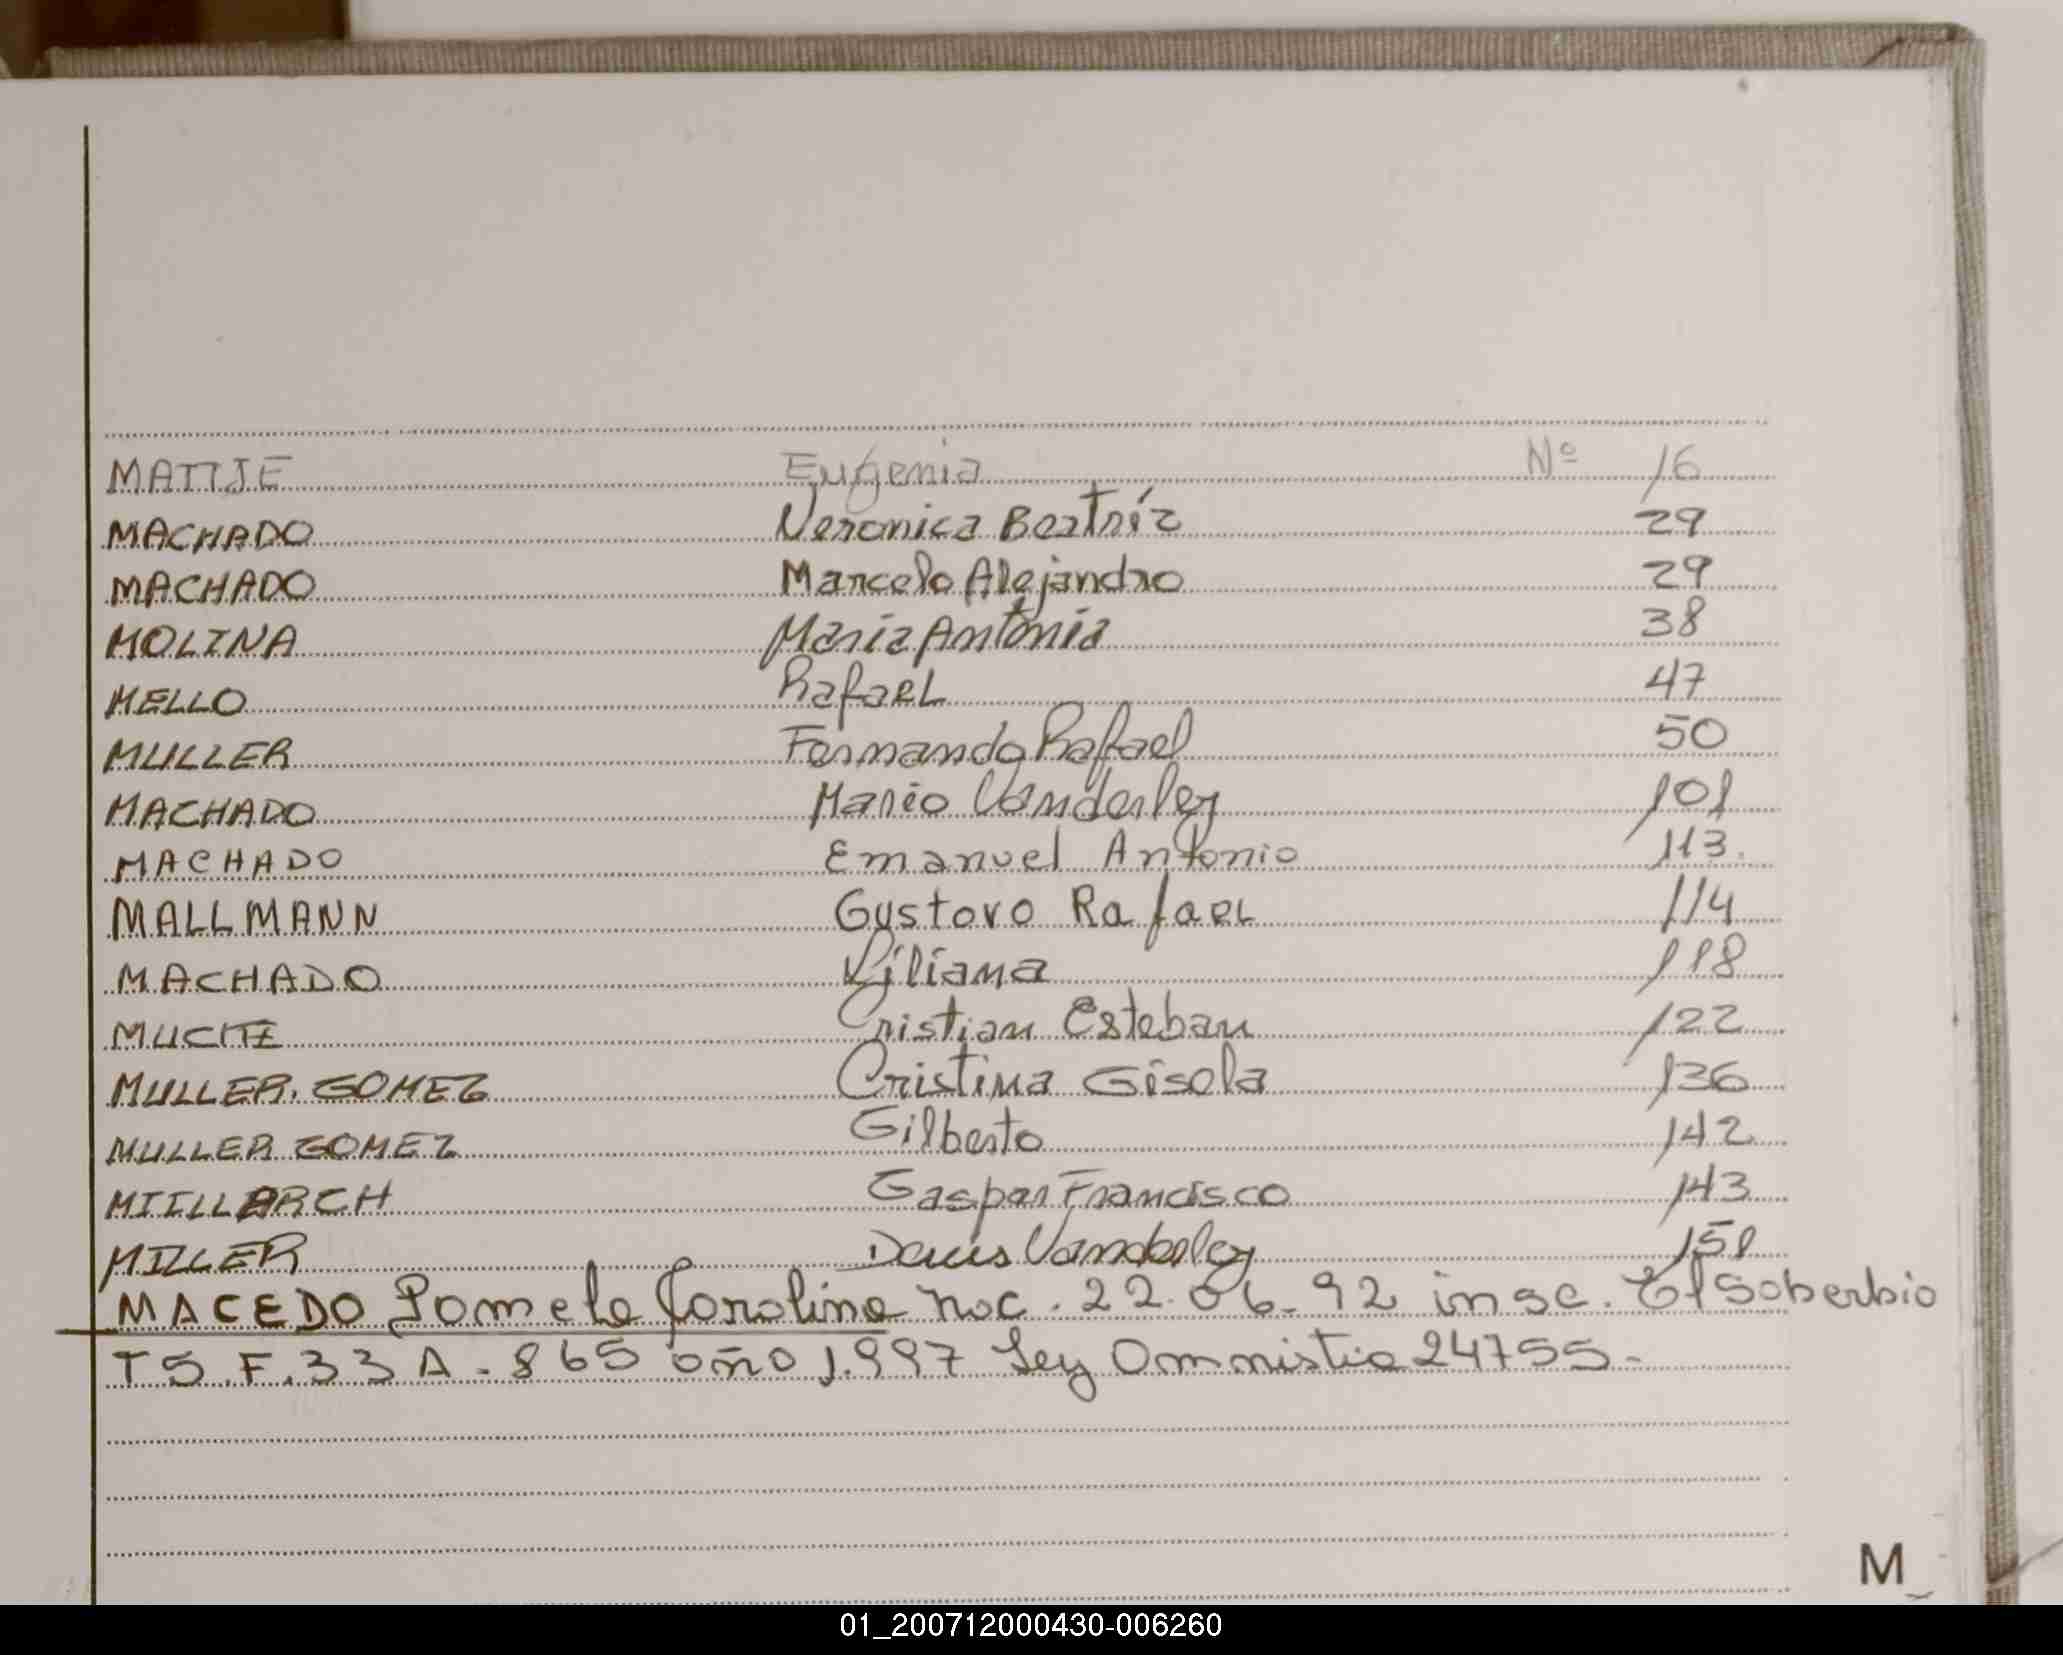 MATTJE Eugenia Nº 16
MACHADO Veronica Beatríz 29
MACHADO Marcelo Alejandro 29
MOLINA Maria Antonia 38
MELLO Rafael 47
MULLER Fernando Rafael 50
MACHADO Mario Vanderley 101
MACHADO Emanuel Antonio 113.
MALLMANN Gustavo Rafael 114
MACHADO Liliana 118
Cristian Esteban 122
MULLER. GOMEZ Cristina Gisela 136
MULLER GOMEZ Gilberto 142
Gaspar Francisco 143
MILLER Vanderley 151
MACEDO Pamela Carolina nac. 22.06.92 insc. El Soberbio
T5.F.33 A-865 año 1.997 Ley Ammistia 24755-
M
01_200712000430-006260